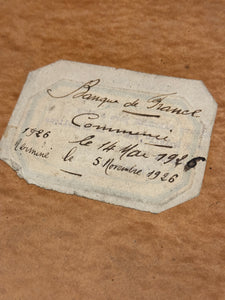 Banque de France
Commencé
le 14 Mai 1926
1926
Terminé le 5 Novembre 1926